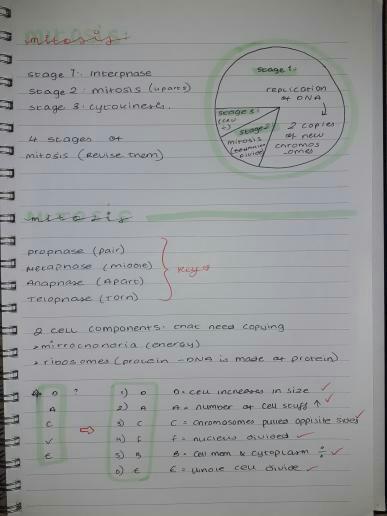 mitosis
Stage 1: interphase
Stage 2: mitosis (4 parts)
Stage 3: cytokinesis.
4 stages of
mitosis (Revise them)
Stage 1:
replication
of DNA
2 copies
of new
chromos
omes
Stage 3:
Stage 2:
mitosis
divide)
mitosis
prophase (pair)
Metaphase (middle)
Anaphase (Apart)
Telophase (Torn)
Key
2 cell components that need copying
mitrochondria (energy)
ribosomes (protein - DNA is made of protein)
D ?
A
C
E
1) D
2) A
3) C
4) F
5) B
6) E
D = cell increases in size
A = number of cell stuff ↑
C = chromosomes pulled oppisite sides
F = nucleus divided
B = cell mem & cytoplasm ÷
E = whole cell divide